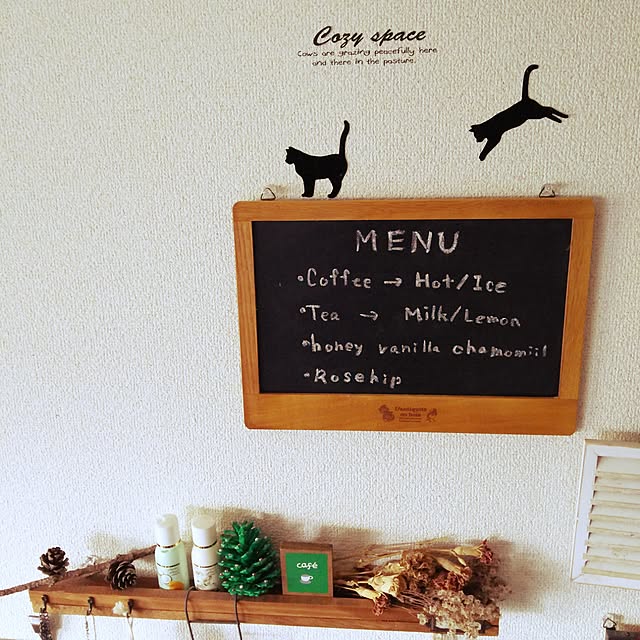 Cozy space
Cows are grazing peacefully here
and there in the pasture.
MENU
•Coffee → Hot/Ice
•Tea → Milk/Lemon
•honey vanilla chamomiil
•Rosehip
café